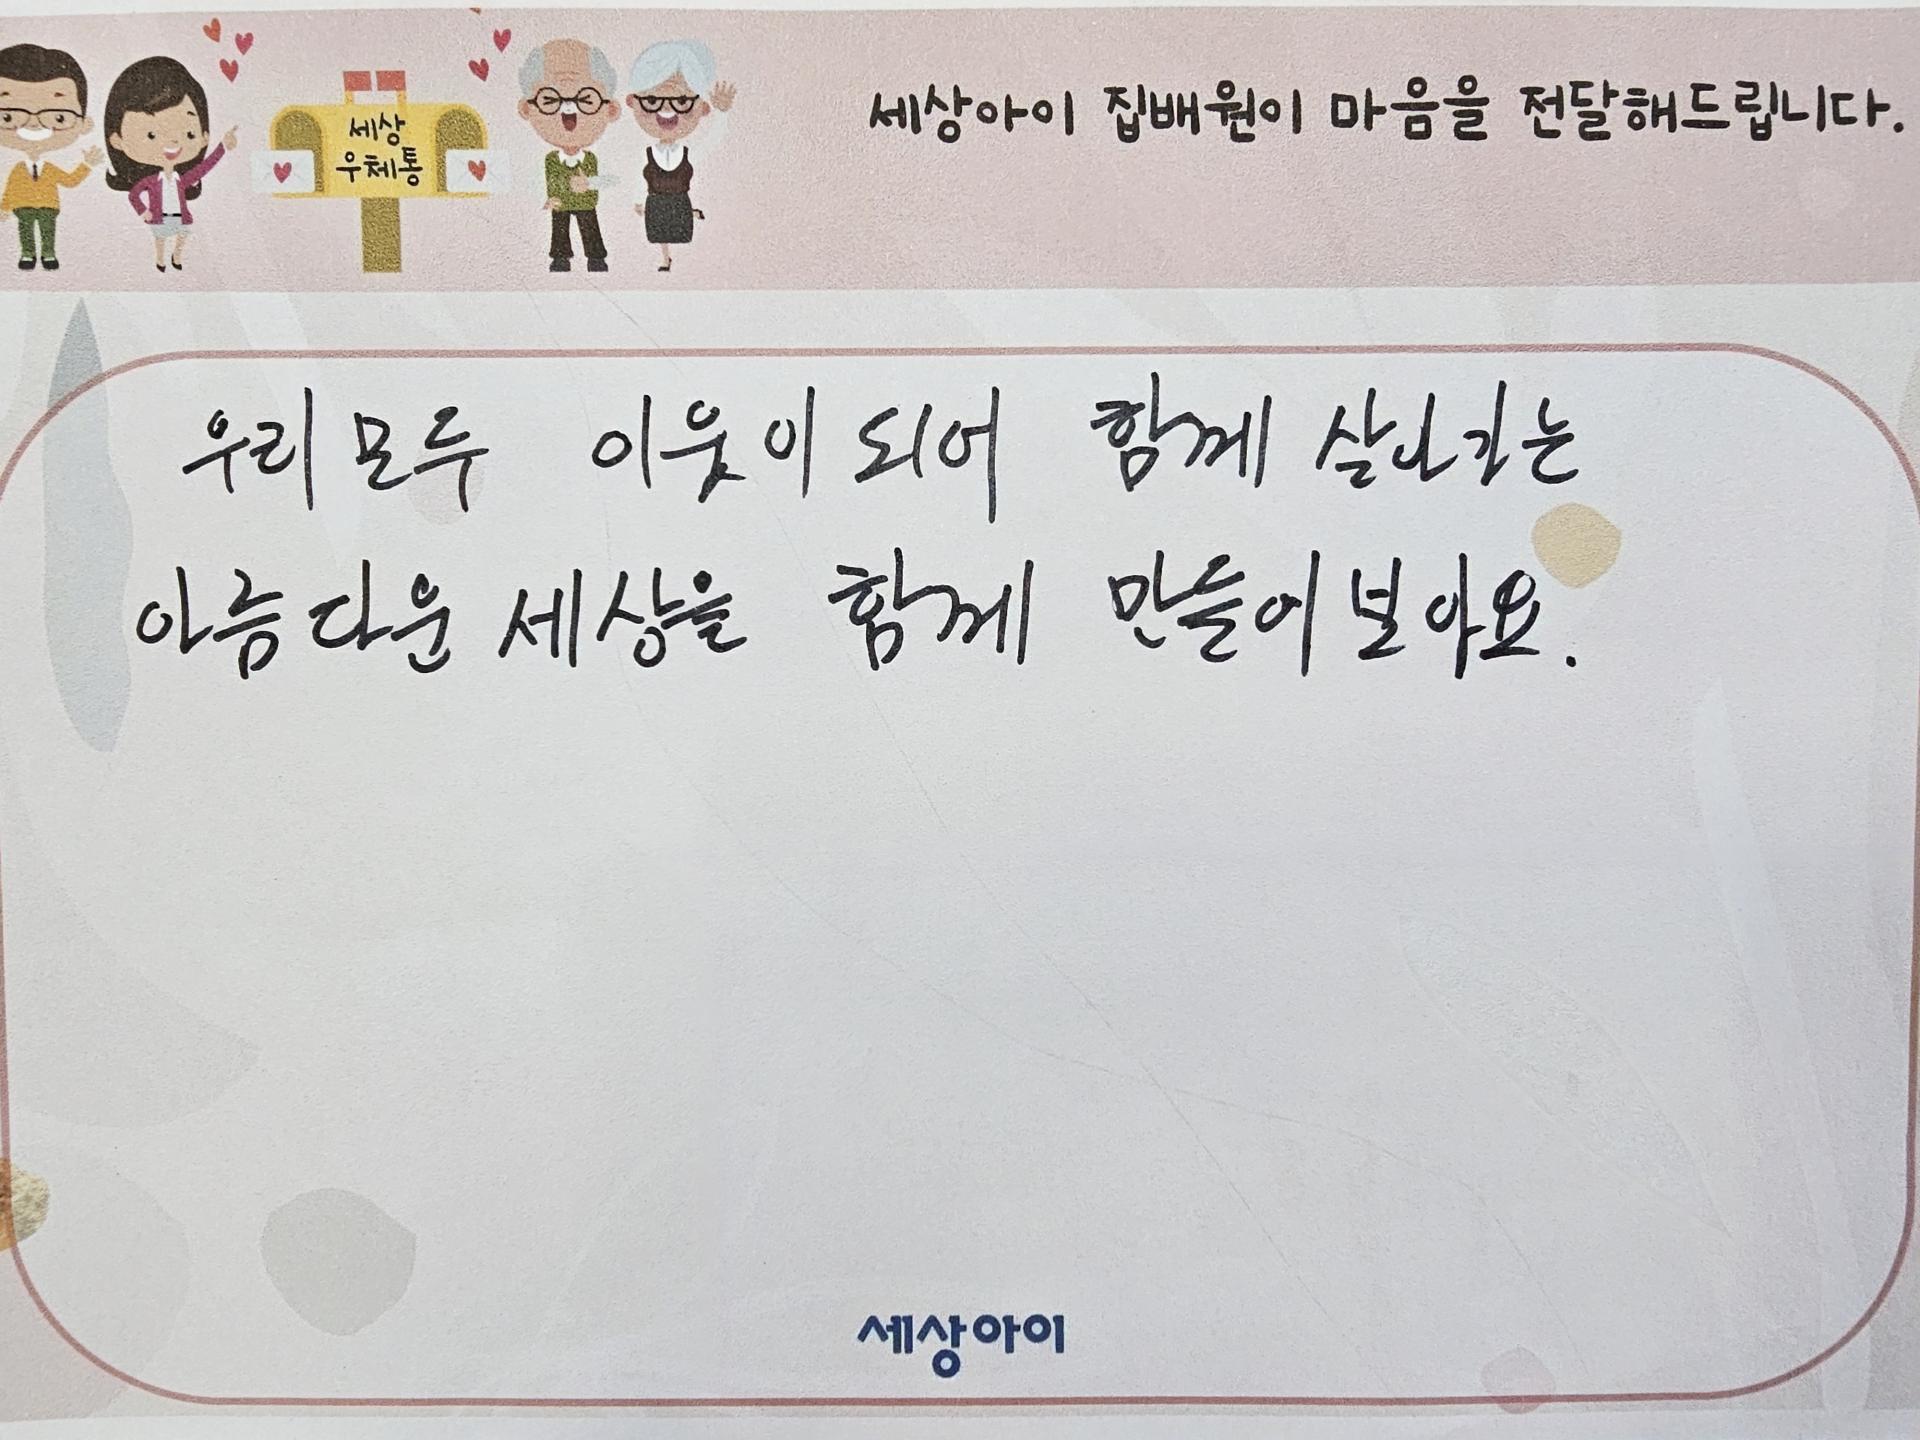 세상아이 집배원이 마음을 전달해드립니다.
세상
우체통
우리 모두 이웃이 되어 함께 살아가는
아름다운 세상을 함께 만들어 보아요.
세상아이